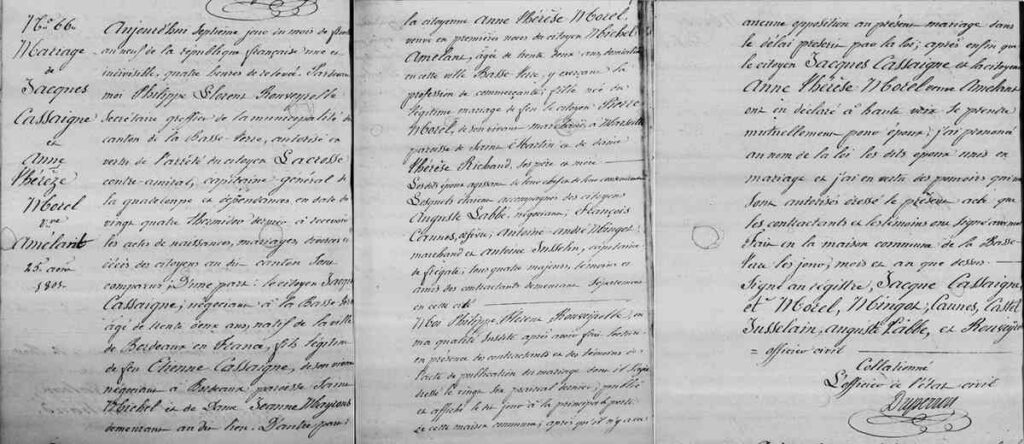 No. 66.
Mariage
de
Jacques
Cassaigne
et
Anne
Thérèze
Morel
Vve
Amelant
25. août
1801.
Aujourd'hui Septieme jour du mois de
an neuf de la république française une et
indivisible, quatre heures de relevé. Pardevant
moi Philippe Florent Rouvroyelle
Secrétaire greffier de la municipalité du
canton de la Basse-terre, autorisé en
vertu de l'arrêté du citoyen Lacrosse
contre-amiral, capitaine général de
la guadeloupe et dépendances en date du
vingt quatre thermidor dernier à recevoir
les actes de naissances, mariages, divorces et
décès des citoyens au dit canton Sont
comparus D'une part: le citoyen Jacques
Cassaigne, négociant à la Basse terre
âgé de trente deux ans, natif de la ville
de Bordeaux en France, fils légitime
de feu Etienne Cassaigne, de son vivant
négociant à Bordeaux paroisse Saint
Michel et de Dame Jeanne
demeurant au dit lieu. D'autre part
la citoyenne Anne Thérèse Morel,
veuve en premieres noces du citoyen Michel
Amelant, âgée de trente deux ans, domiciliée
en cette ville Basse terre, y exerçant la
profession de commerçante; fille née du
légitime mariage de feu le citoyen Pierre
Morel, de son vivant marchand, à Marseille
paroisse de Saint Martin et de Dame
Thérèse Richaud, ses père et mère
Lesdits époux agissant de leur chef et de leur consentement
Lesquels étaient accompagnés des citoyens
Auguste Labbé, négociant, François
Cannes, officier, Antoine andré Mingot
marchand et antoine Jusselin, capitaine
de frégate, tous quatre majeurs, témoins et
amis des contractants demeurant Séparement
en cette cité
Moi Philippe Florent Rouvroyelle, en
ma qualité Susdite après avoir fait lecture
en présence des contractants et des témoins de
l'acte de publication du mariage dont il s'agit
dressé le vingt du prairial dernier; publié
et affiché le dit jour à la principale porte
de cette maison commune; après qu'il n'y a eu
aucune opposition au présent mariage dans
le délai prescrit par la loi; après enfin que
le citoyen Jacques Cassaigne et la citoyenne
Anne Thérèse Morel veuve Amelant
ont eu déclaré à haute voix se prendre
mutuellement pour époux; j'ai prononcé
au nom de la loi les dits époux unis en
mariage et j'ai en vertu des pouvoirs qui me
sont autorisés dressé le présent acte que
les contractants et les témoins ont signé avec moi
Fait en la maison commune de la Basse-
terre les jour, mois et an que dessus
Signé au régistre, Jacque Cassaigne
et Morel, Mingot, Cannes, Castel
Jusselain, auguste Labbé, et Rouvroyelle
= officier civil
Collationné
L'officier de l'état civil